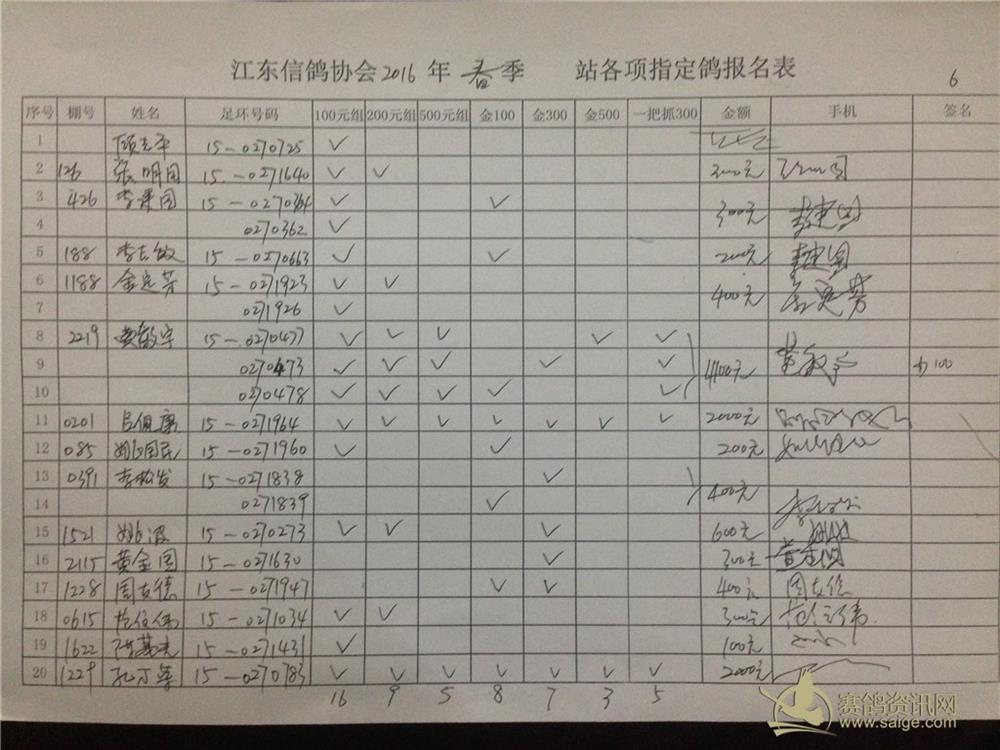 江东信鸽协会2016年 春季 站各项指定鸽报名表
6
序号 棚号 姓名 足环号码 100元组 200元组 500元组 金100 金300 金500 一把抓300 金额 手机 签名
1 15-0270725 ✓
2 126 张明国 15-0271640 ✓ ✓ 300元
3 426 李建国 15-0270364 ✓ ✓ 300元 李建国
4 0270362 ✓
5 188 李志敏 15-0270663 ✓ ✓ 200元
6 1188 金定芳 15-0271923 ✓ ✓ 400元 金定芳
7 0271926 ✓
8 2219 15-0270477 ✓ ✓ ✓ ✓ ✓
9 0270473 ✓ ✓ ✓ ✓ ✓ 4100元 100
10 0270478 ✓ ✓ ✓ ✓ ✓
11 0201 15-0271964 ✓ ✓ ✓ ✓ ✓ ✓ ✓ 2000元
12 085 姚国民 15-0271960 ✓ ✓ 200元
13 0391 李松发 15-0271838 ✓ 400元
14 0271839 ✓
15 1521 姚波 15-0270273 ✓ ✓ ✓ 600元
16 2115 黄金国 15-0271630 ✓ 300元 黄金国
17 1228 周友德 15-0271947 ✓ ✓ 400元 周友德
18 0615 范仕伟 15-0271034 ✓ ✓ 300元 范仕伟
19 1622 15-0271431 ✓ 100元
20 1229 15-0270783 ✓ ✓ ✓ ✓ ✓ ✓ ✓ 2000元
16 9 5 8 7 3 5
赛鸽资讯网
www.saige.com